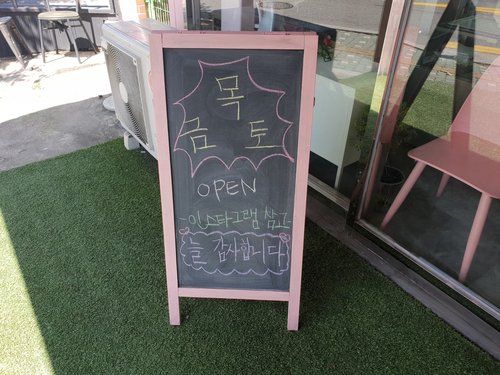 목
금 토
OPEN
-인스타그램 참고-
늘 감사합니다